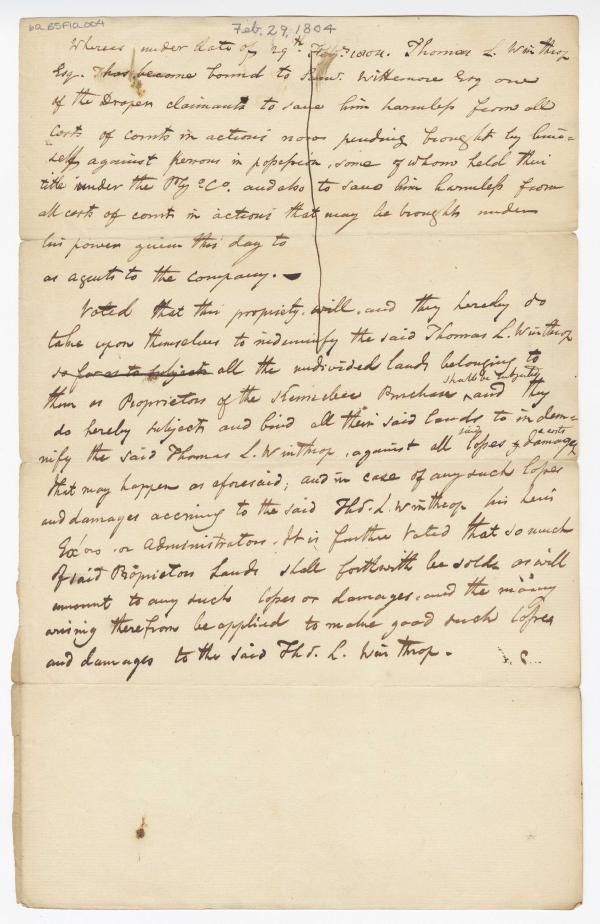 6a B5F12.004
Feb. 29, 1804
Whereas under date of 29th Feby. 1804. Thomas L. Winthrop
Esqr. has become bound to Saml. Wittemore Esq one
of the Draper claimants to save him harmless from all
Costs of courts in actions now pending brought by him=
self against persons in possession, some of whom held their
title under the Ply. Co. and also to save him harmless from
all costs of courts in actions that may be brought under
his power given this day to
as agents to the company. —
Voted that this propriety will, and they hereby do
take upon themselves to indemnify the said Thomas L. Winthrop
so far as to subject all the undivided lands belonging to
them as Proprietors of the Kennebec Purchase shall be subject, and they
do hereby subject and bind all their said lands to indem-
nify the said Thomas L. Winthrop, against all such losses & costs damages
that may happen as aforesaid; and in case of any such losses
and damages accruing to the said Tho. L. Winthrop his heirs
Exo'rs or Administrators. It is further Voted that so much
of said Proprietors Lands shall forthwith be sold as will
amount to any such losses or damages, and the money
arising therefrom be applied to make good such losses
and damages to the said Tho. L. Winthrop.